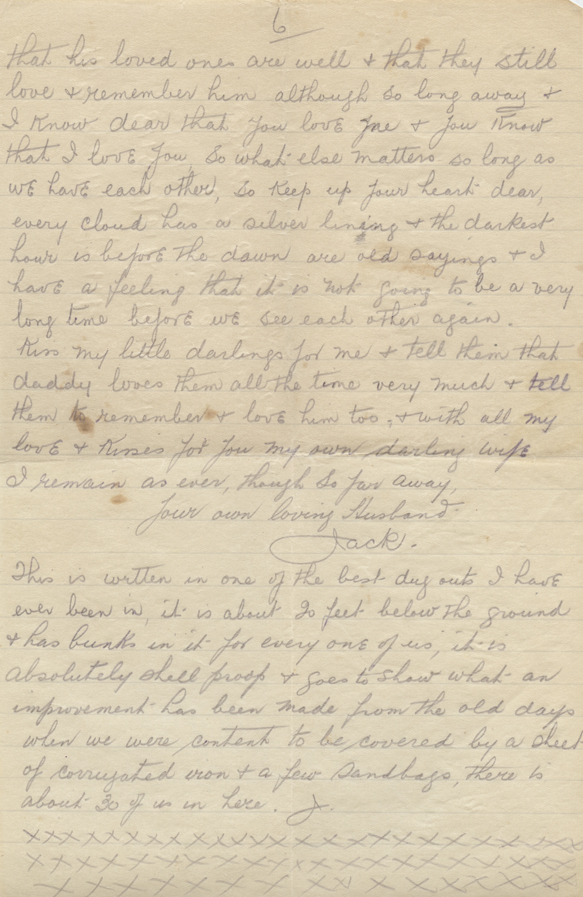 6
that his loved ones are well & that they still
love & remember him although so long away &
I know dear that you love me & you know
that I love you, so what else matters so long as
we have each other, so keep up your heart dear,
every cloud has a silver lining & the darkest
hour is before the dawn are old sayings & I
have a feeling that it is not going to be a very
long time before we see each other again.
Kiss my little darlings for me & tell them that
daddy loves them all the time very much & tell
them to remember & love him too, & with all my
love & kisses for you my own darling wife
I remain as ever, though so far away,
Your own loving Husband
Jack.
This is written in one of the best dug outs I have
ever been in, it is about 20 feet below the ground
& has bunks in it for every one of us, it is
absolutely shell proof & goes to show what an
improvement has been made from the old days
when we were content to be covered by a sheet
of corrugated iron & a few sandbags, there is
about 30 of us in here. J.
xxxxxxxxxxxxxxxxxxxxxxxx
xxxxxxxxxxxxxxxxxxxxxx
xxxxxxxxxxxxxxxx